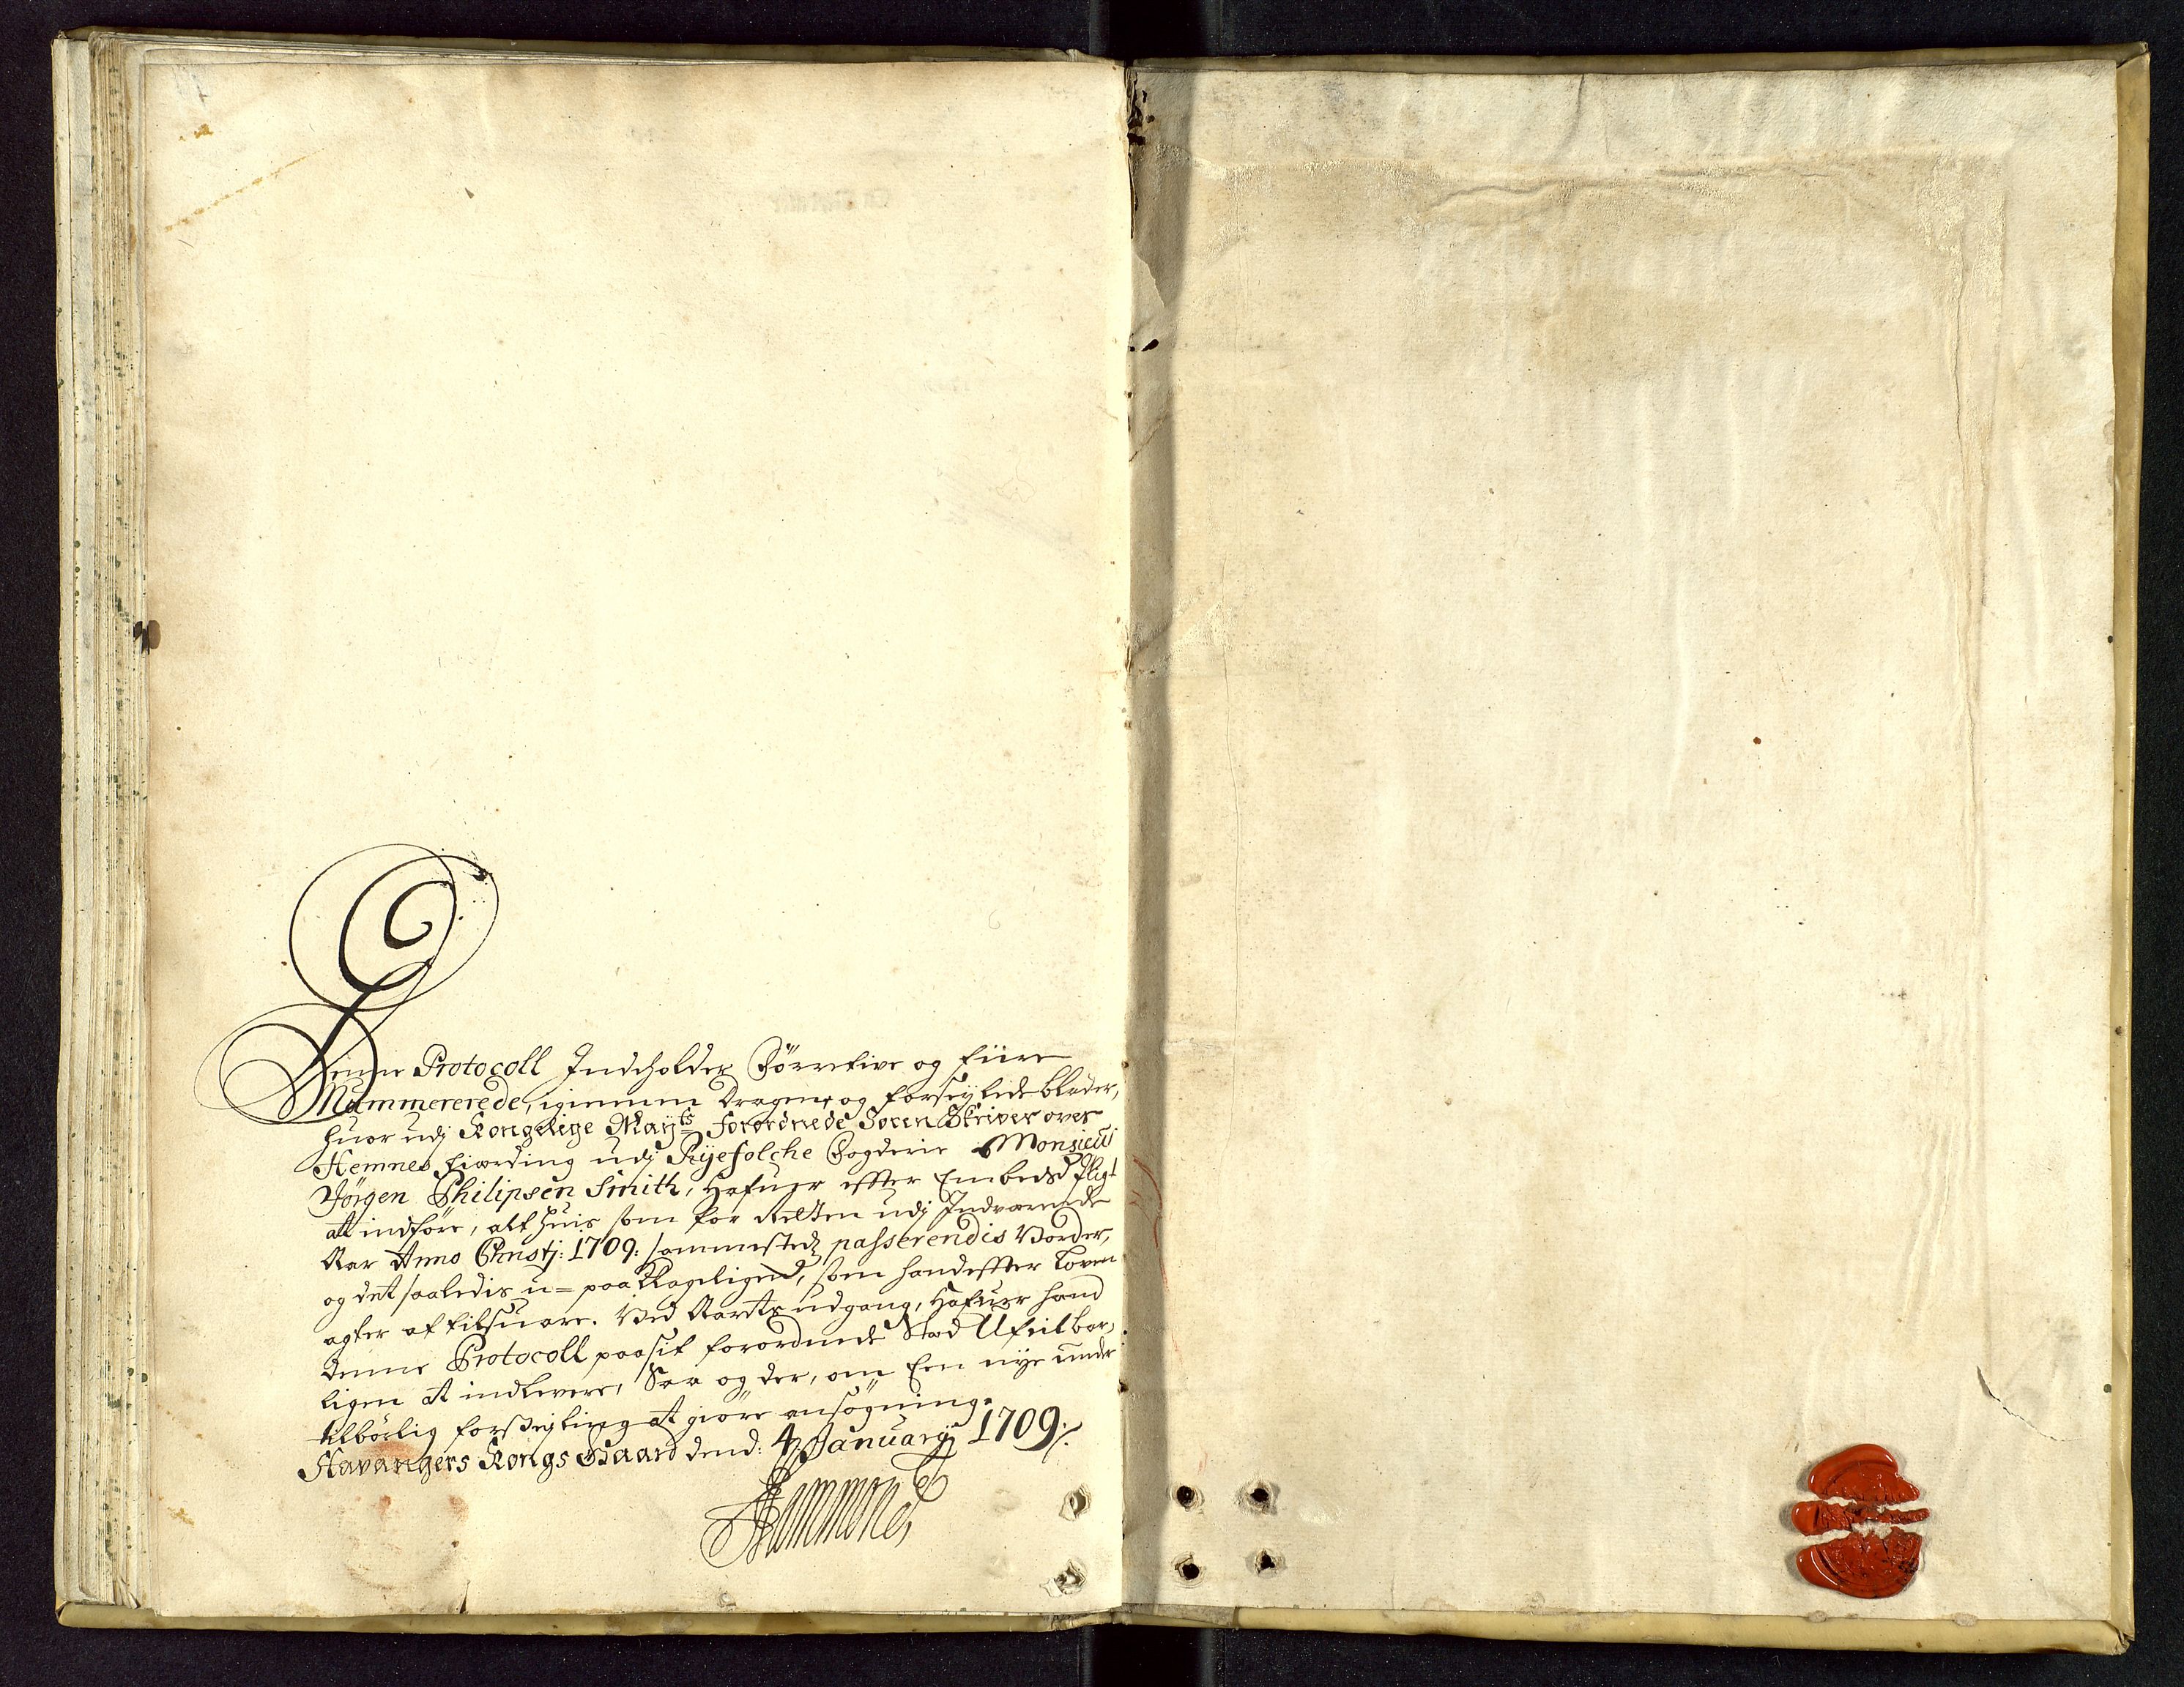 Denne Protocoll Indeholder Förretive og fiire
Nummererede, igiennem dragene og forseylede blader,
huor udj Kongelige Mayts forordnede Soren Skriver over
Hemnes fiærding udj Ryefolche Fogderie Monsieur
Jörgen Philipsen Smith, hafuer effter Embeds Pligt
att indföre, alt huis som for Retten udj Indværende
Aar Anno Christj: 1709: sammestedz passerendis vorder,
og det saaledis u=paaklageligen, som hand effter Loven
agter at tilsuare. Ved Aarets udgang, hafuer hand
denne Protocoll paa sit forordnede Stæd Ufeilbar=
ligen at indlevere, Saa og der, om Een nye under
tilbörlig forseigling at giöre ansögning.
Stavangers Kongs Gaard dend: 4 Januarij 1709:/.
Hammond